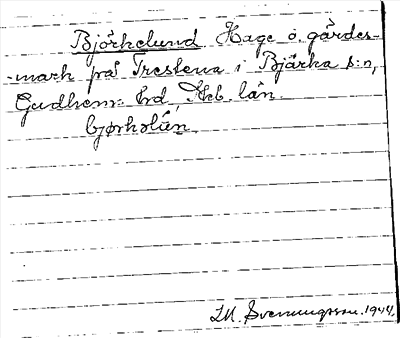 Björkelund Hage o. gärdes-
-mark på Trestena i Bjärka s:n,
Gudhems hd, Skb. län.
bjørkəlún
I.M. Svenungsson. 1944.